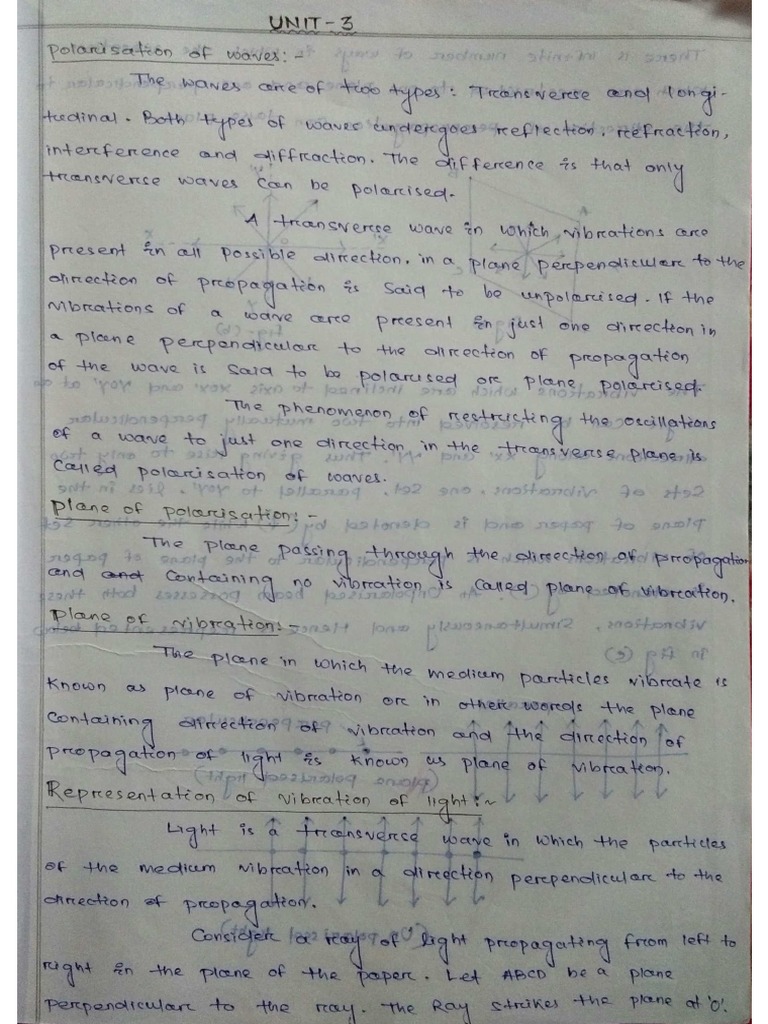 UNIT-3
Polarisation of waves:-
The waves are of two types: Transverse and longi-
tudinal. Both types of waves undergoes reflection, refraction,
interference and diffraction. The difference is that only
transverse waves can be polarised.
A transverse wave in which vibrations are
present in all possible direction, in a plane perpendicular to the
direction of propagation is said to be unpolarised. If the
vibrations of a wave are present in just one direction in
a plane perpendicular to the direction of propagation
of the wave is said to be polarised or plane polarised.
The phenomenon of restructing the oscillations
of a wave to just one direction in the transverse plane is
called polarisation of waves.
Plane of polarisation:-
The plane passing through the direction of propagation
and and containing no vibration is called plane of vibration.
Plane of vibration:-
The plane in which the medium particles vibrate is
known as plane of vibration or in other words the plane
containing direction of vibration and the direction of
propagation of light is known as plane of vibration.
Representation of vibration of light:~
Light is a transverse wave in which the particles
of the medium vibration in a direction perpendicular to the
direction of propagation.
Consider a ray of light propagating from left to
right in the plane of the paper. Let ABCD be a plane
perpendicular to the ray. The Ray strikes the plane at 'O'.